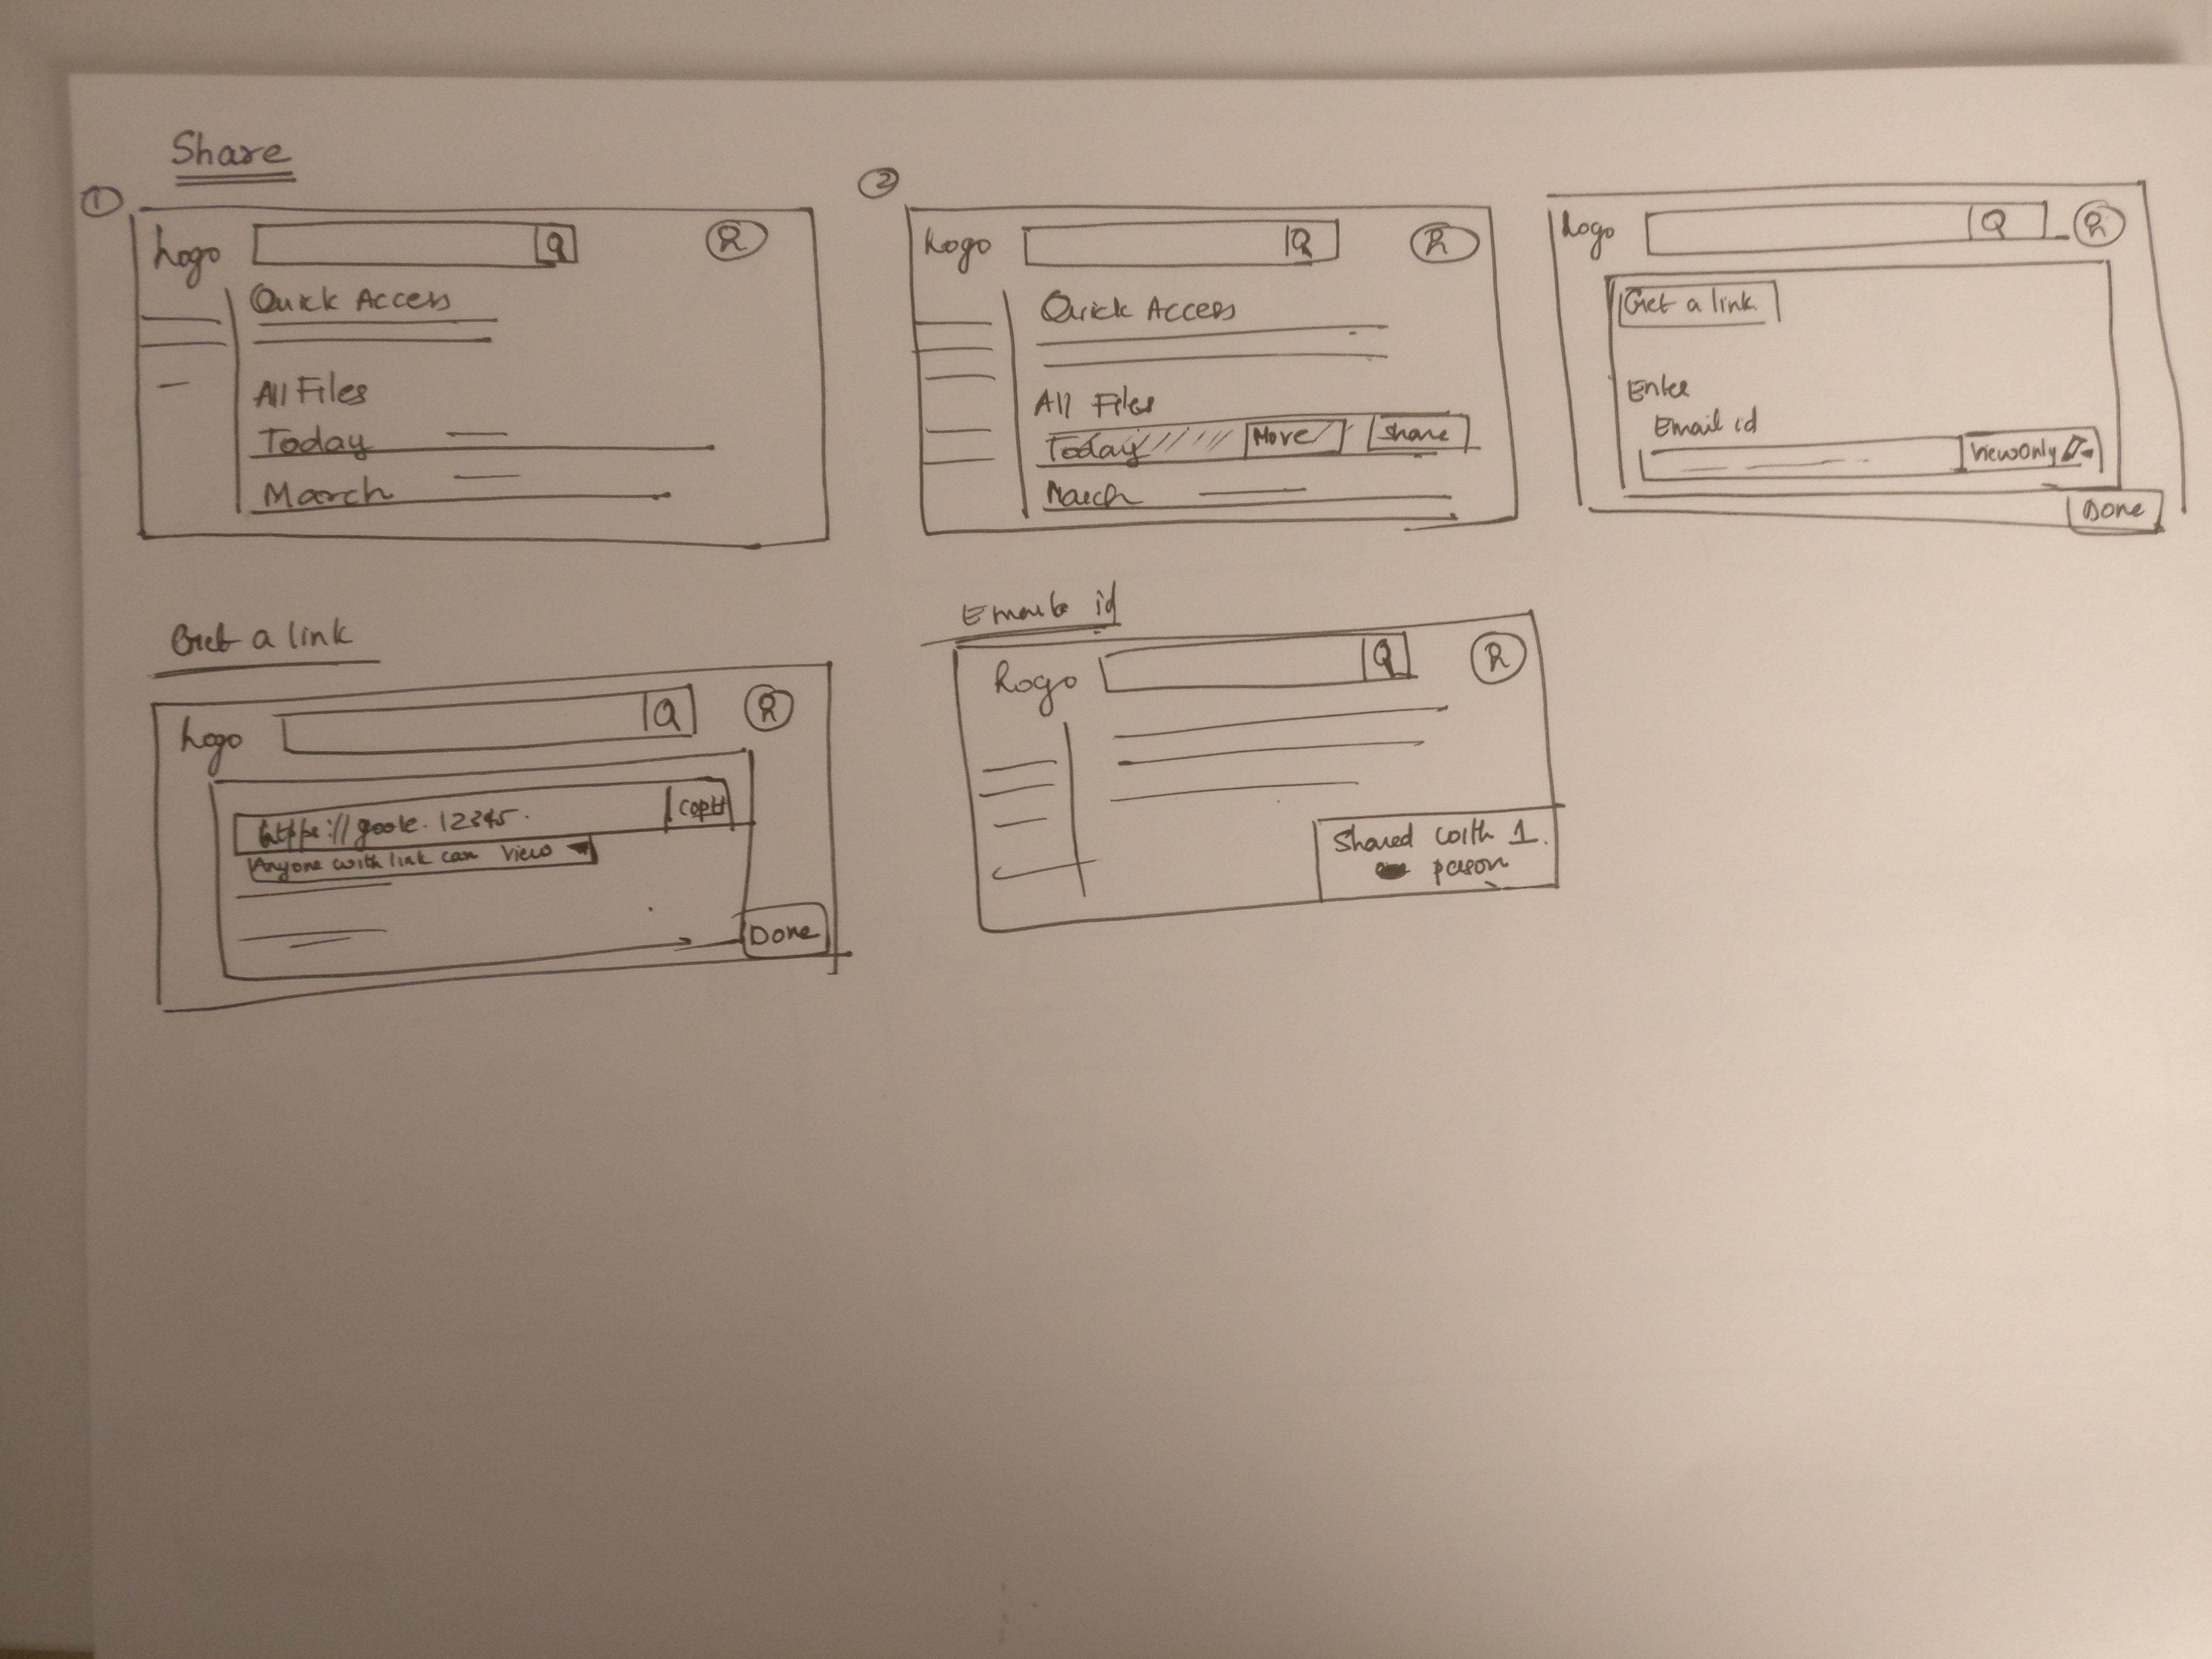 Share
1
Logo Q R
Quick Access
All Files
Today
March
2
Logo Q R
Quick Access
All Files
Today Move Share
March
Logo Q R
Get a link
Enter
Email id
View Only
Done
Get a link
Logo Q R
https://goole.12345. copy
Anyone with link can view
Done
Email id
Logo Q R
Shared with 1.
person